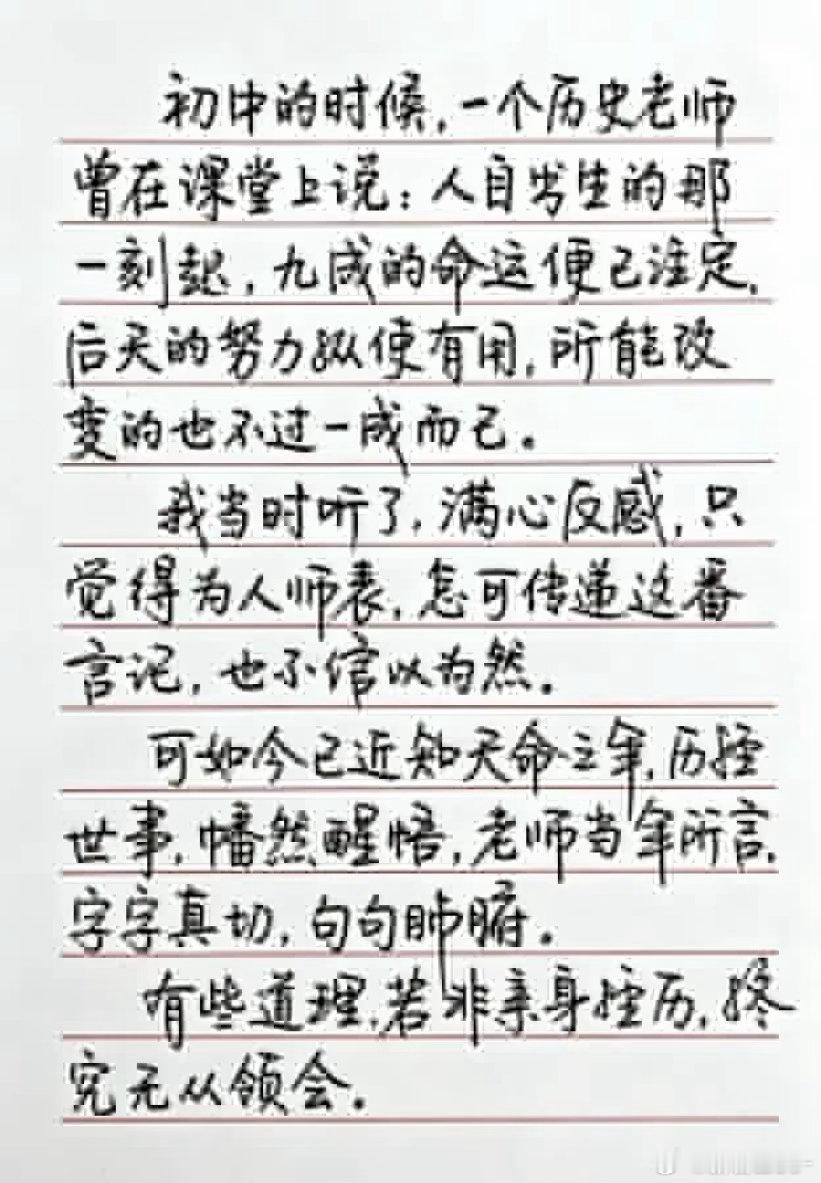 初中的时候,一个历史老师
曾在课堂上说:人自出生的那
一刻起,九成的命运便已注定,
后天的努力纵使有用,所能改
变的也不过一成而已。
我当时听了,满心反感,只
觉得为人师表,怎可传递这番
言论,也不信以为然。
可如今已近知天命之年,历经
世事,幡然醒悟,老师当年所言,
字字真切,句句肺腑。
有些道理,若非亲身经历,终
究无从领会。